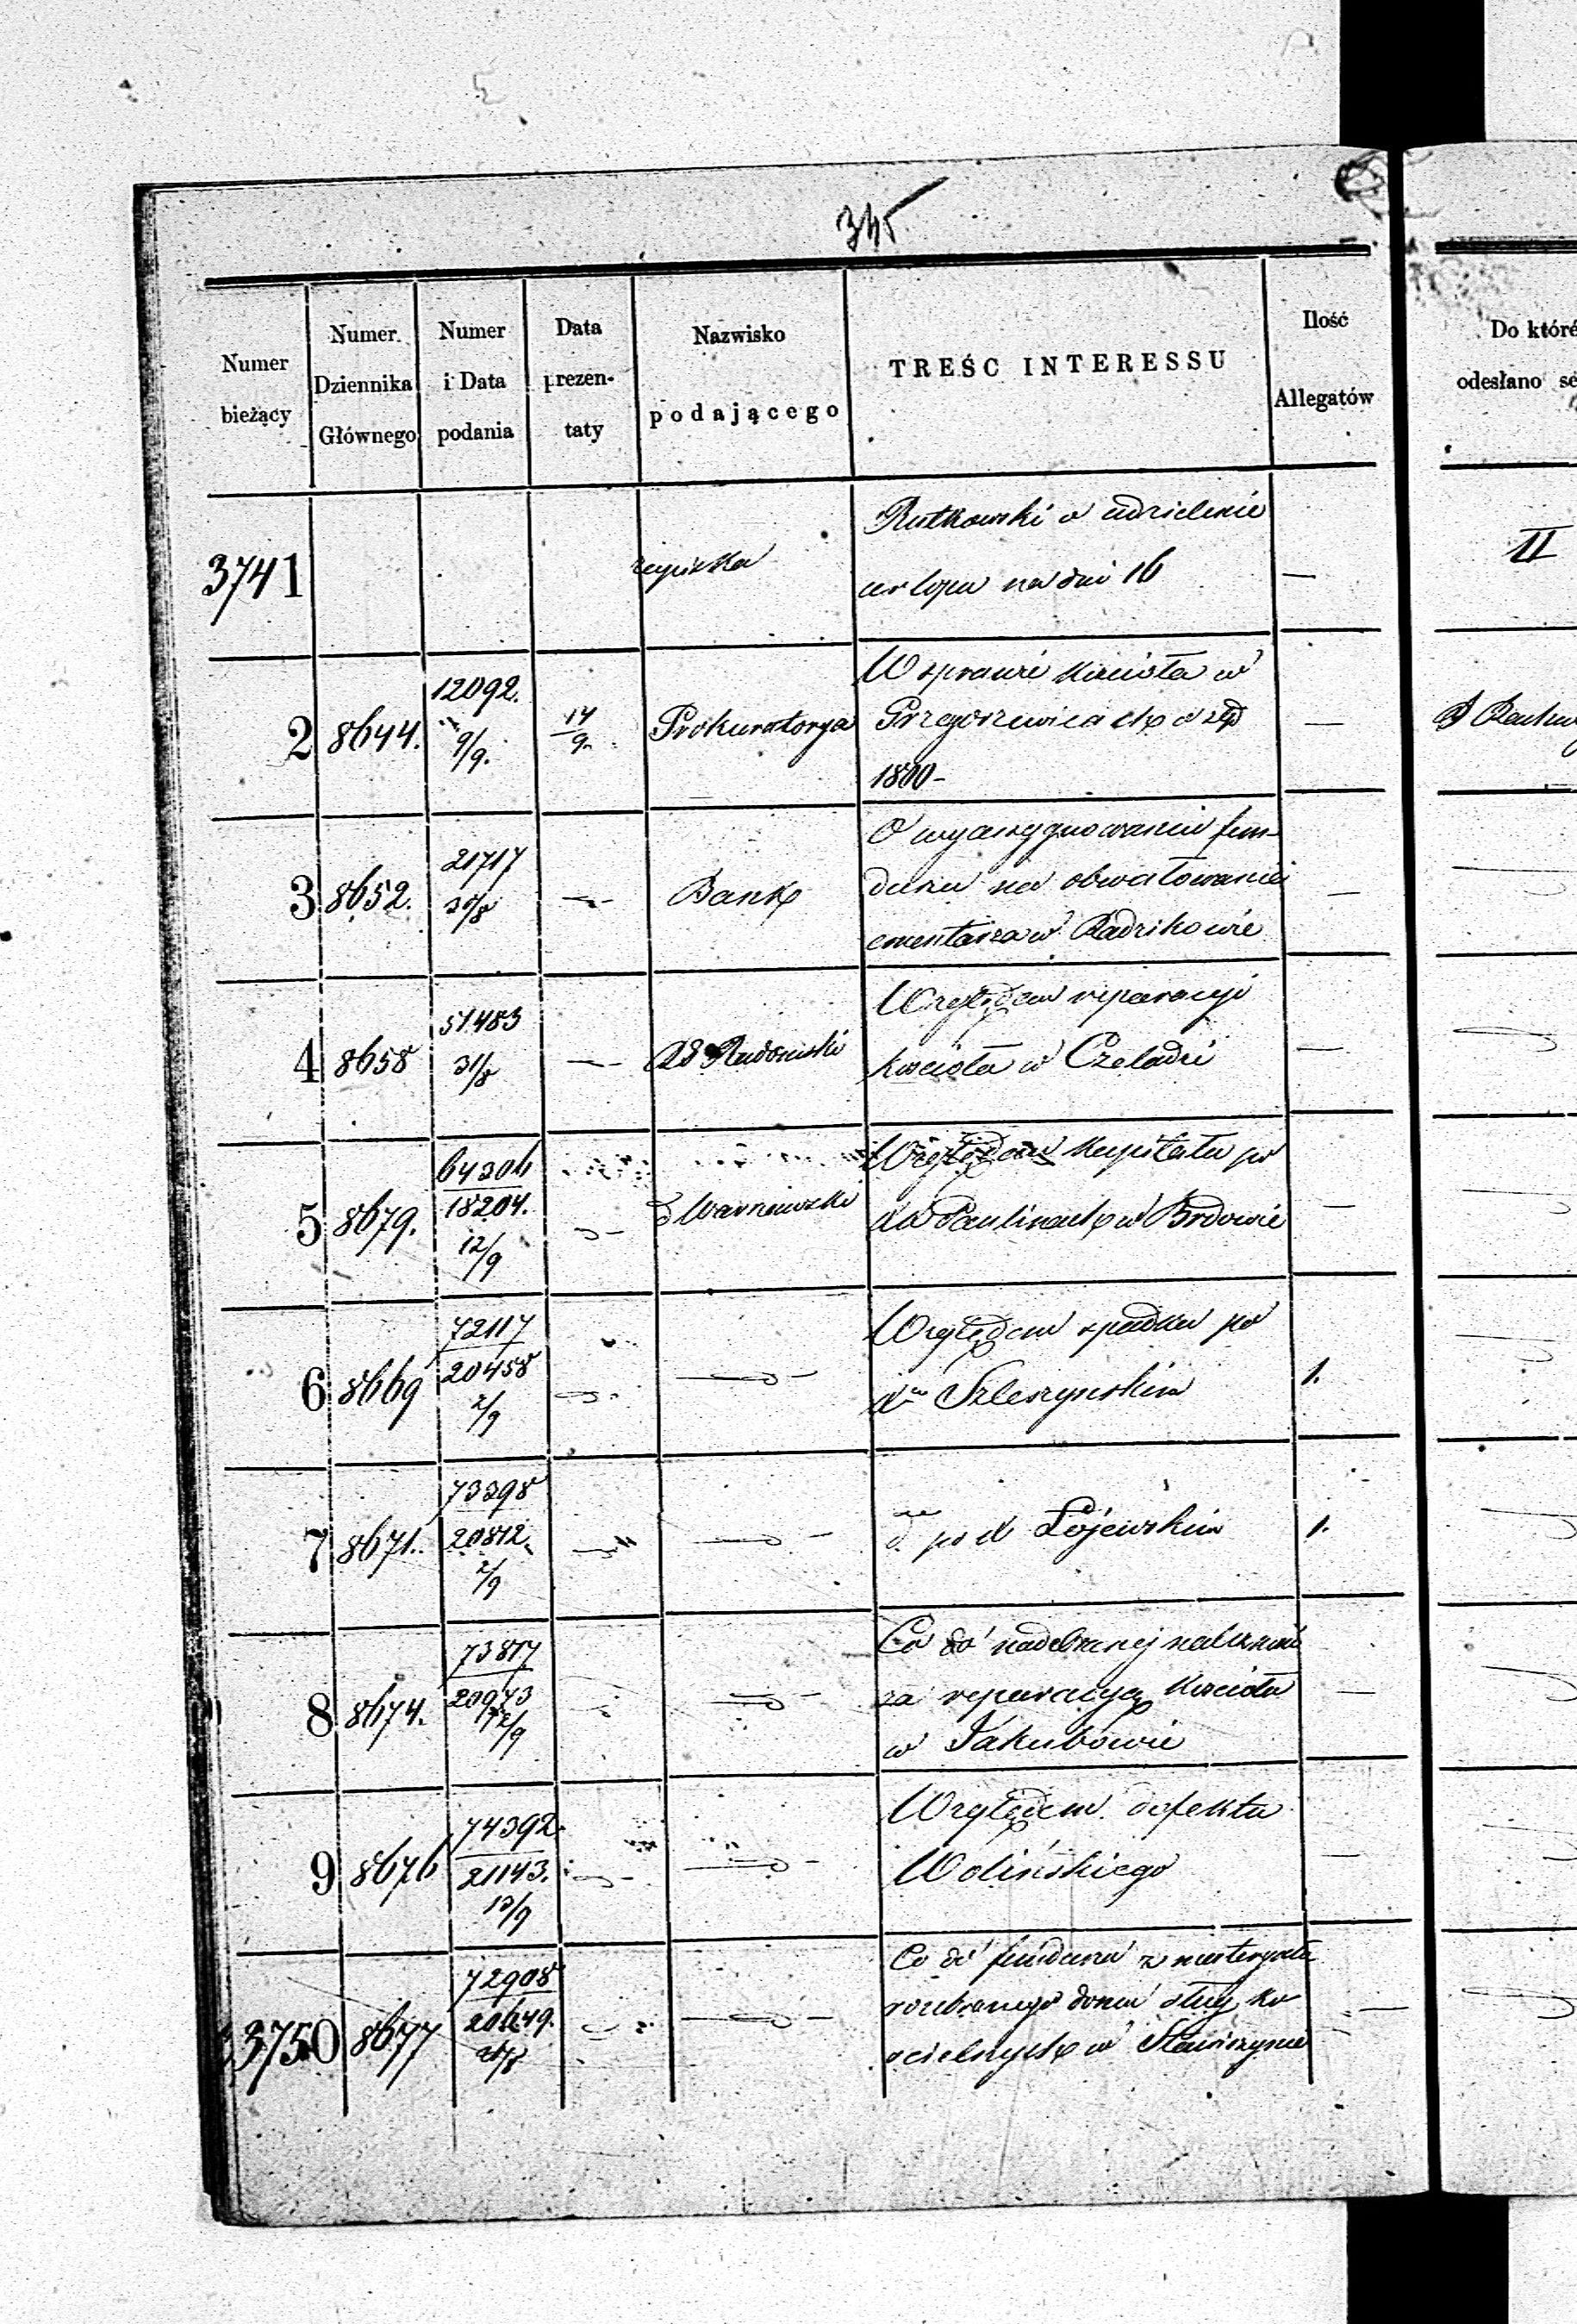 345
Numer bieżący
Numer Dziennika Głównego
Numer i Data podania
Data prezen- taty
Nazwisko podającego
TREŚC INTERESSU
Ilość Allegatów
Do któré
odesłano se
3741
Rutkowski o udzielenie
urlopu na dni 16
—
II
2 8644. 12092. 9/9. 14/9. Prokuratorya
W sprawie kościoła w
Grzegorzewicach o złp
1800 –
—
3 8652. 21717 30/8 — Bank
O wyassygnowaniu fun-
duszu na obwałowanie
cmentarza w Radzikowie
—
4 8658 51483 31/8 — RG Radomski
Względem reparacyi
kościoła w Czeladzi
—
5 8679. 64206 18204. 12/9 Warszawski
Względem kapitału po
Paulinach w Brdowie
—
6 8669 72117 20458 2/9
Względem spadku po
Xu Szleszynskim
1.
7 8671. 73398 20812. 2/9
po X Łojewskim
1.
8 8674. 73817 20973 2/9
Co do nadebranej należności
za reparacyą kościoła
w Jakubowie
—
9 8676 74392 21143. 13/9
Względem defektu
Wolińskiego
—
3750 8677 72908 20649.
Co do funduszu z materyału
rozebranego domu sług ko
ścielnych w
—